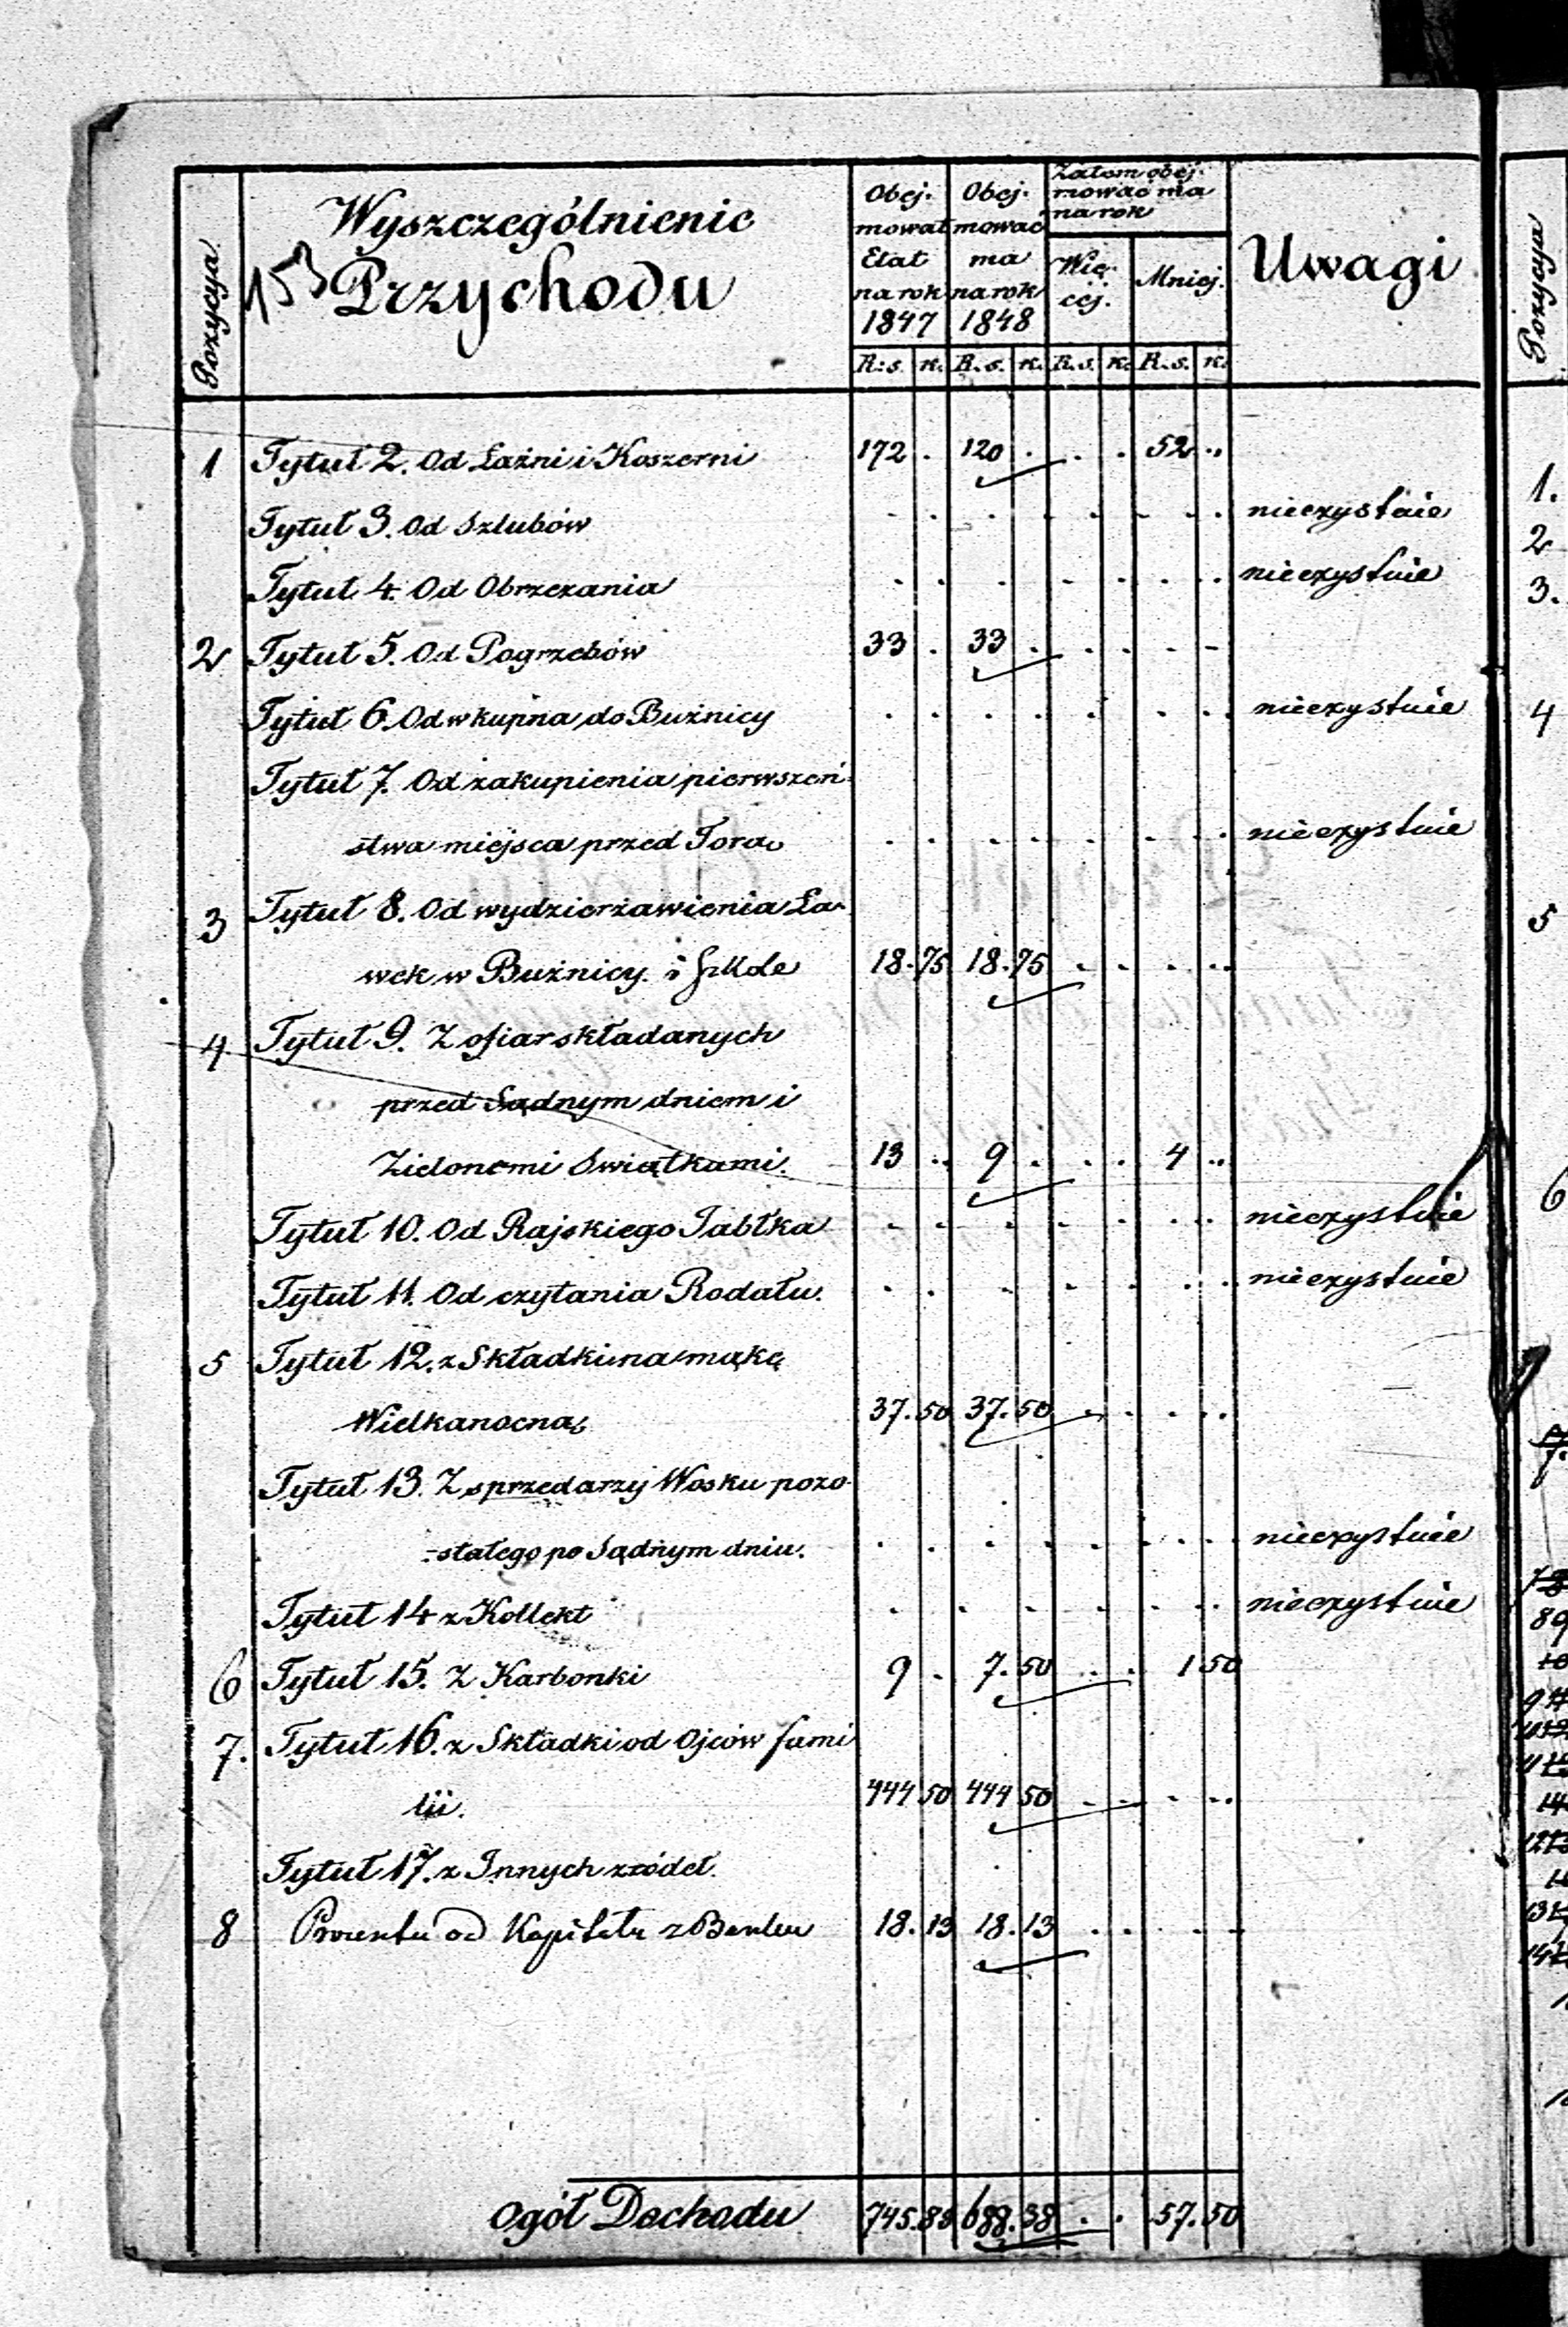 Pozycya
Wyszczególnienie
Przychodu
153
Obej-
mował
Etat
na rok
1847
Obej-
mować
ma
na rok
1848
Zatem obej-
mować ma
na rok
Wię-
cej.
Mniej.
Uwagi
R: s. k. R. s. k. R. s. k. R. s. k.
1 Tytuł 2. Od Łaźni i Koszerni 172 . 120 . . . 52 ..
Tytuł 3. Od Szlubów nieexystuie
Tytuł 4. Od Obrzezania nieexystuie
2 Tytuł 5. Od Pogrzebów 33 . 33 . . . . -
Tytuł 6. Od wkupna do Bużnicy nieexystuie
Tytuł 7. Od zakupienia pierwszeń
stwa miejsca przed Torą nieexystuie
3 Tytuł 8. Od wydzierżawienia Ła-
wek w Bużnicy i Szkole 18. 75 18. 75 . . . ..
4 Tytuł 9. Z ofiar składanych
przed Sądnym dniem i
Zielonemi Swiątkami. 13 .. 9 . . . 4 ..
Tytuł 10. Od Rajskiego Jabłka nieexystuie
Tytuł 11. Od czytania Rodału. nieexystuie
5 Tytuł 12. z Składki na mąkę
Wielkanocną 37. 50 37. 50 . . . ..
Tytuł 13. Z sprzedarzy Wosku pozo-
-stałego po Sądnym dniu. nieexystuie
Tytuł 14 z Kollekt nieexystuie
6 Tytuł 15. Z Karbonki 9 . 7. 50 . . 1 50
7. Tytuł 16. z Składki od Ojców fami
lii. 444 50 444 50 . . . ..
Tytuł 17. z Innych zródeł.
8 Procentu od Kapitału z Banku 18. 13 18. 13 . . . -
Ogół Dochodu 745. 88 688. 38 . . 57. 50
Pozycya
1.
2
3.
4
5
6